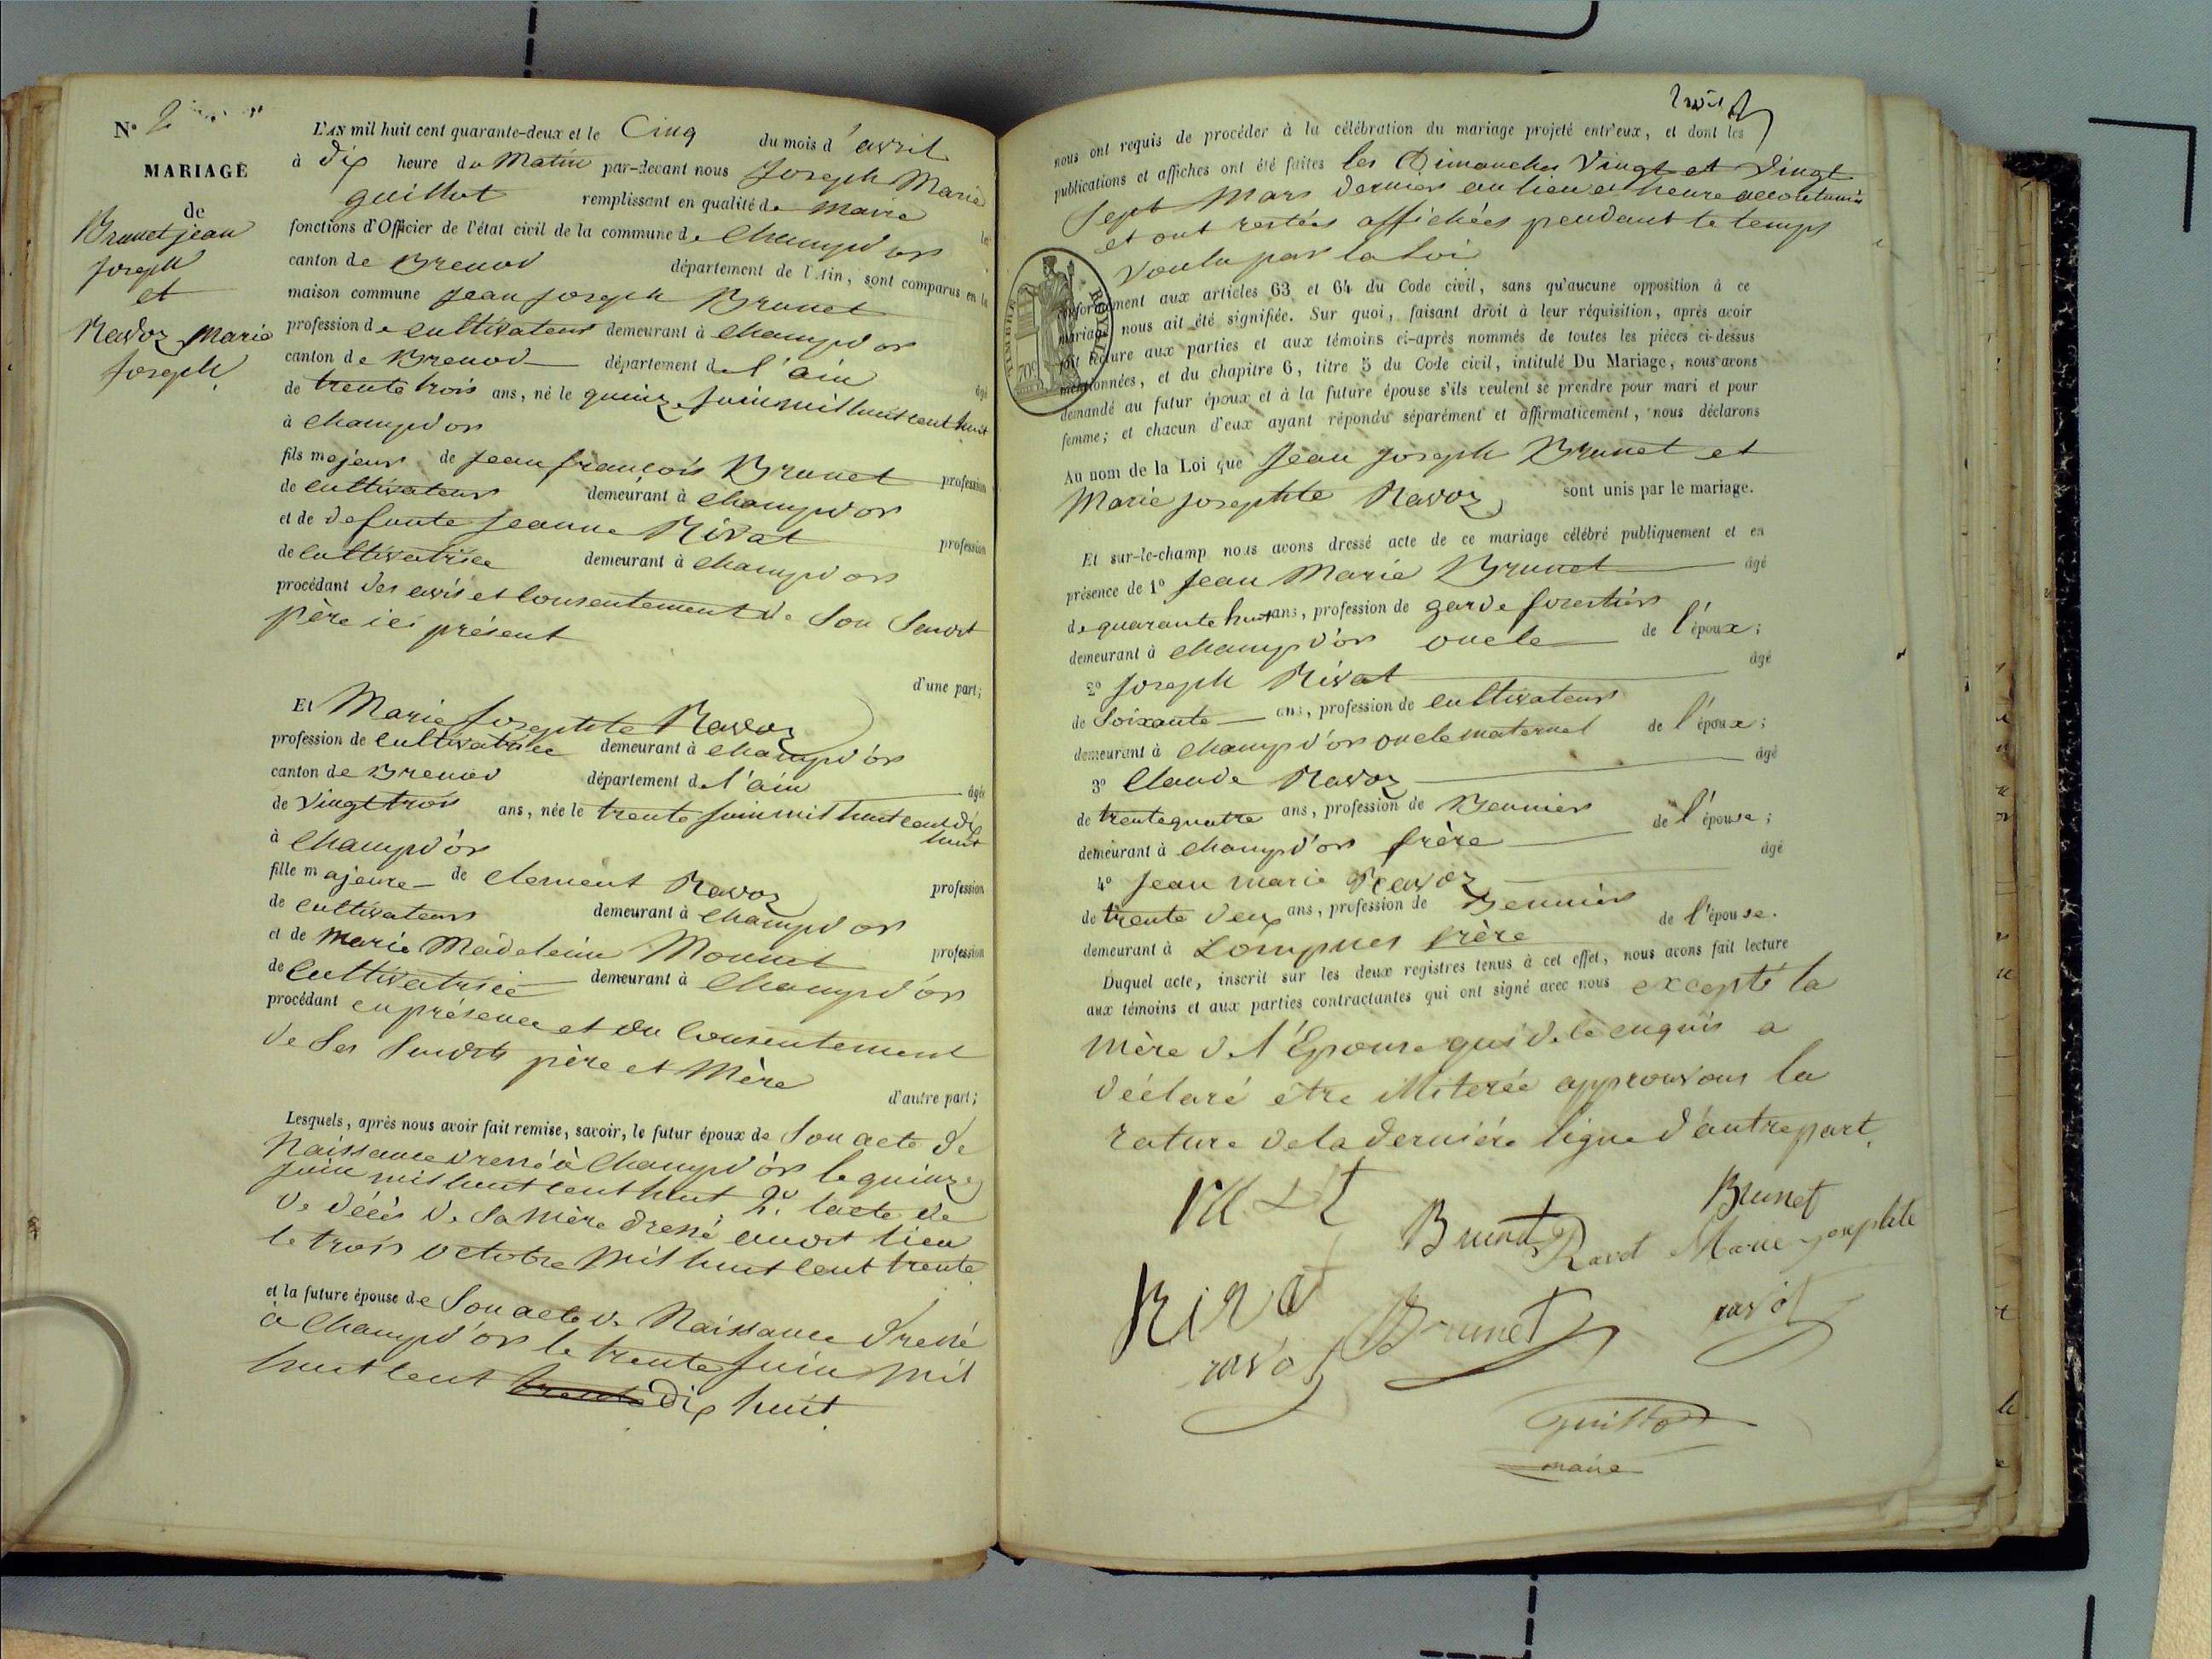 N° 2
MARIAGE
de
Brunet jean
joseph
et
Ravoz Marie
Joseph
L'AN mil huit cent quarante-deux et le Cinq du mois d'avril
à dix heure du Matin par-devant nous Joseph Marie
guillot remplissant en qualité de Maire les
fonctions d'Officier de l'état civil de la commune de Champd'or
canton de Brenod département de l'Ain, sont comparus en la
maison commune jean joseph Brunet
profession de cultivateur demeurant à Champd'or
canton de Brenod département de l'ain âgé
de trente trois ans, né le quinze juin mil huit cent huit
à Champd'or
fils majeur de jean françois Brunet profession
de cultivateur demeurant à Champd'or
et de defunte jeanne Rivat profession
de cultivatrice demeurant à Champd'or
procédant des avis et Consentement de Son Susdit
père ici présent
d'une part;
Et Marie Josephte Ravoz
profession de cultivatrice demeurant à Champd'or
canton de Brenod département de l'ain âgée
de vingt trois ans, née le trente juin mil huit cent dix
huit
à Champd'or
fille majeure de clement Ravoz profession
de cultivateur demeurant à Champd'or
et de Marie Madeleine Monnet profession
de Cultivatrice demeurant à Champd'or
procédant en présence et du Consentement
de Ses Susdits père et Mère
d'autre part;
Lesquels, après nous avoir fait remise, savoir, le futur époux de Son acte de
Naissance dressé à Champd'or le quinze
juin mil huit cent huit 2° l'acte de
de décès de Sa Mère dressé audit lieu
le trois octobre Mil huit cent trente
et la future épouse de Son acte de Naissance dressé
à Champd'or le trente juin Mil
huit cent dix huit
nous ont requis de procéder à la célébration du mariage projeté entr'eux, et dont les
publications et affiches ont été faites les Dimanches Vingt et Vingt
Sept Mars dernier au lieu et heure accoutumés
et ont restées affichées pendant le temps
Voulu par la Loi
conformément aux articles 63 et 64 du Code civil, sans qu'aucune opposition à ce
mariage nous ait été signifiée. Sur quoi, faisant droit à leur réquisition, après avoir
fait lecture aux parties et aux témoins ci-après nommés de toutes les pièces ci-dessus
mentionnées, et du chapitre 6, titre 5 du Code civil, intitulé Du Mariage, nous avons
demandé au futur époux et à la future épouse s'ils veulent se prendre pour mari et pour
femme; et chacun d'eux ayant répondu séparément et affirmativement, nous déclarons
Au nom de la Loi que Jean Joseph Brunet et
Marie Josephte Ravoz sont unis par le mariage.
Et sur-le-champ nous avons dressé acte de ce mariage célébré publiquement et en
présence de 1° Jean Marie Brunet âgé
de quarante huit ans, profession de garde forestier
demeurant à Champd'or oncle de l'époux;
2° Joseph Rivat âgé
de Soixante ans, profession de cultivateur
demeurant à Champd'or oncle maternel de l'époux;
3° Claude Ravoz âgé
de trente quatre ans, profession de Bennier
demeurant à Champd'or frère de l'épouse;
4° Jean marie Ravoz âgé
de trente deux ans, profession de Bennier
demeurant à Lompnes frère de l'épouse.
Duquel acte, inscrit sur les deux registres tenus à cet effet, nous avons fait lecture
aux témoins et aux parties contractantes qui ont signé avec nous excepté la
Mère de l'Epouse qui de ce enquis a
déclaré être illiterée approuvons la
rature de la dernière ligne d'autre part.
Brunet
Brunet
Ravot Marie josephte
Rivat
Brunet
ravot
ravot
Guillot
maire
TIMBRE ROYAL